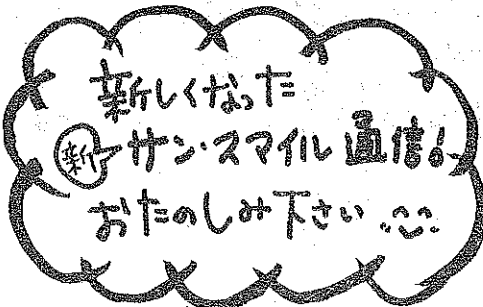 新しくなった
新 サン・スマイル通信!
おたのしみ下さい